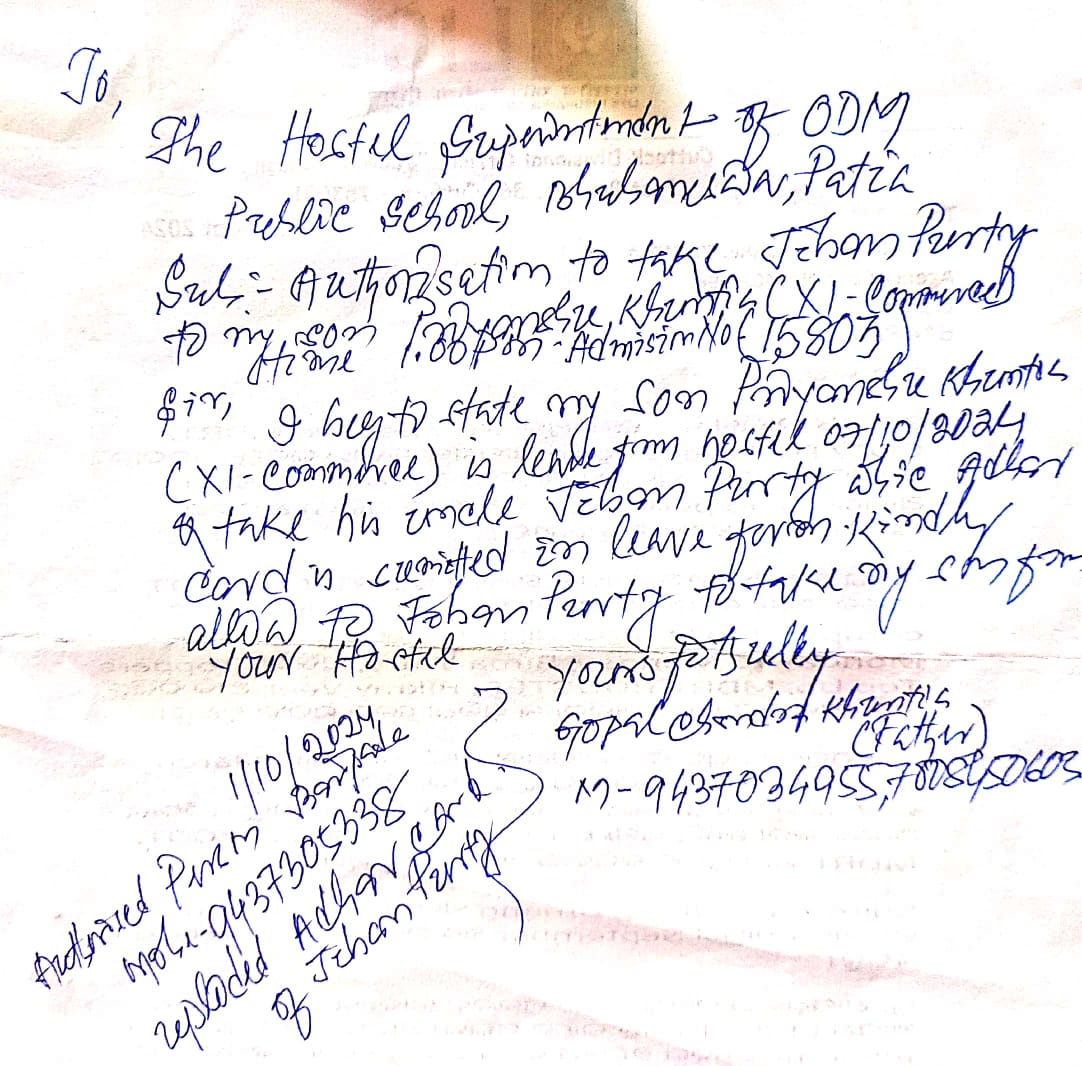 To,
The Hostel Superintendent of ODM
Public School, Bhubaneswar, Patia
Sub:- Authorisation to take Jiban Purty
to my son Priyanshu Khuntia (XI-Commerce)
time 1.00pm - Admission No (15803)
Sir, I beg to state my son Priyanshu Khuntia
(XI-Commerce) is leave from hostel 07/10/2024
& take his uncle Jiban Purty Adhar
Card is sumitted in leave form. Kindly
allow to Jiban Purty to take my son from
your Hostel
Yours
Gopal Chandra Khuntia
(Father)
M-9437034955,
1/10/2024
Baripada
Authorised Person
Mob:-9437305338
uploaded Adhar Card
of Jiban Purty